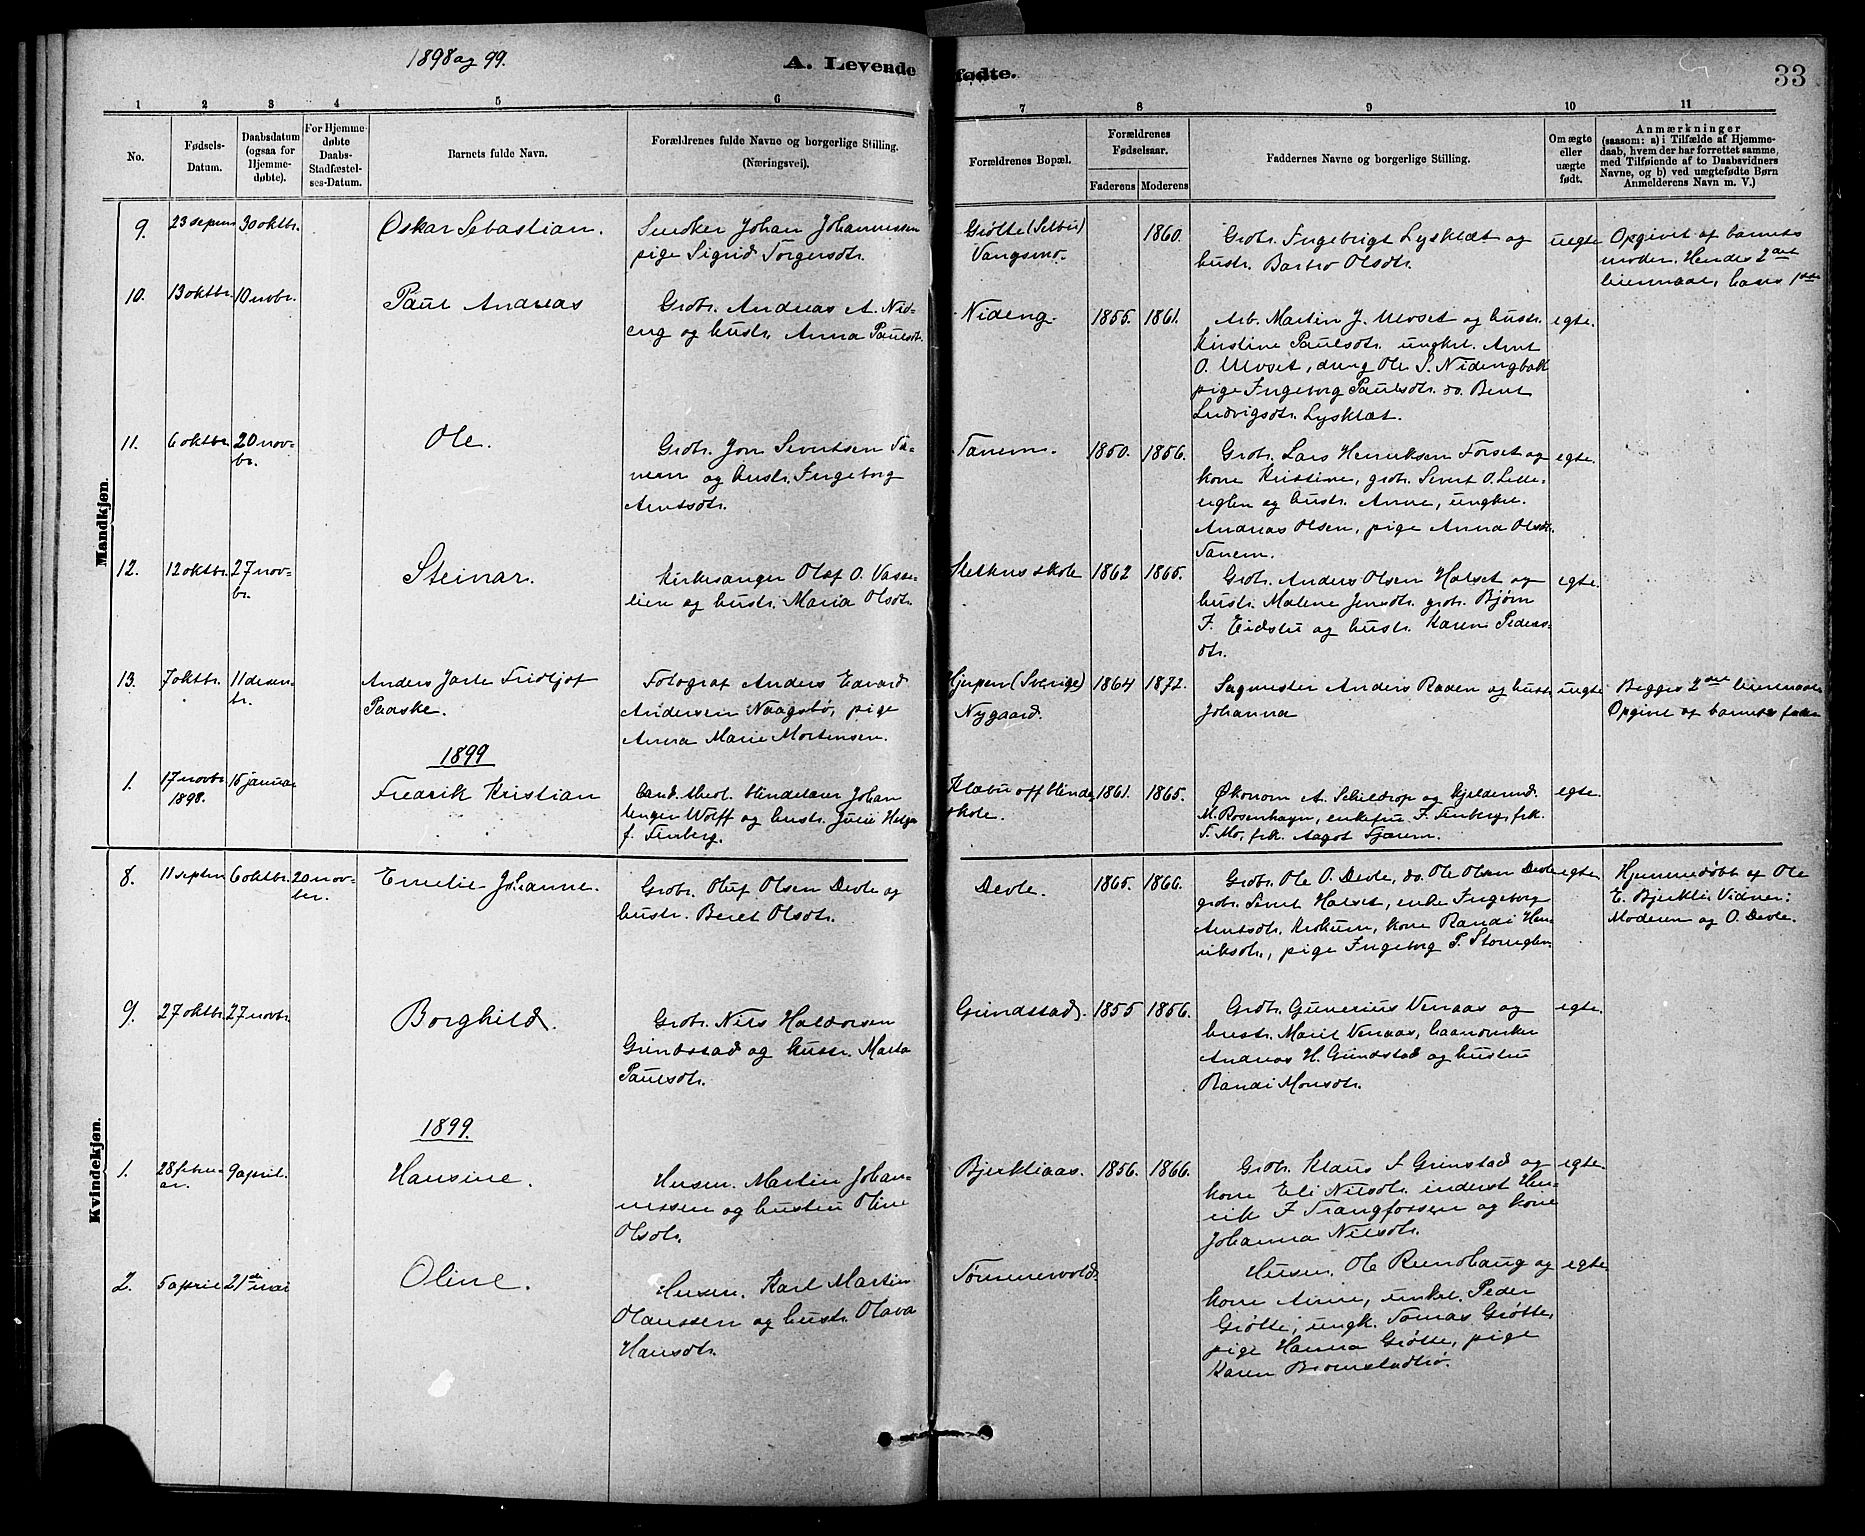 1898 og 99.
A. Levende fødte.
33
1 2 3 4 5 6 7 8 9 10 11
No.
Fødsels-
Datum.
Daabsdatum
(ogsaa for
Hjemme-
døbte).
For Hjemme-
døbte
Daabs-
Stadfæstel-
ses-Datum.
Barnets fulde Navn.
Forældrenes fulde Navne og borgerlige Stilling.
(Næringsvei).
Forældrenes Bopæl.
Forældrenes
Fødselsaar.
Faderens Moderens
Faddernes Navne og borgerlige Stilling.
Om ægte
eller
uægte
født.
Anmærkninger
(saasom: a) i Tilfælde af Hjemme-
daab, hvem der har forrettet samme,
med Tilføiende af to Daabsvidners
Navne, og b) ved uægtefødte Børn
Anmelderens Navn m. V.)
Mandkjøn.
9. 23 septem 30 oktbr. Oskar Sebastian.
Snedker Johan Johannessen
pige Sigrid Torgersdtr.
Grøtte (Selbu)
Vangsmo.
1860.
Grdbr. Ingebrigt Lysklæt og
hustr. Barbro Olsdtr.
uegte
Opgivet af barnets
moder. Hendes 2det
leiermaal, hans 1ste
10. 13 oktbr. 10 novbr. Paul Andreas
Grdbr. Andreas A. Nid-
eng og hustr. Anna Paulsdtr.
Nideng. 1855. 1861.
Arb. Martin J. Ulvset og hustr.
Kirstine Paulsdtr. ungkrl. Arnt
O. Ulvset, dreng Ole S. Nidengbak
pige Ingeborg Paulsdtr. do. Berit
Ludvigsdtr. Lysklæt.
egte.
11. 6 oktbr. 20 nov-
br.
Ole.
Grdbr. Jon Sivertsen Ta-
nem og hustr. Ingeborg
Arntsdtr.
Tanem. 1850. 1856.
Grdbr. Lars Henriksen Forset og
kone Kristine, grdbr. Sivert O. Lille-
uglen og hustr. Anne, ungkrl.
Andreas Olsen, pige Anna Olsdtr.
Tanem.
egte.
12. 12 oktbr. 27 nov-
br.
Steinar.
Kirkesanger Olaf O. Vasse-
lien og hustr. Maria Olsdtr.
skole 1862 1865.
Grdbr. Anders Olsen Halset og
hustr. Malene Jensdtr. grdbr. Bjørn
F. Eidstu og hustr. Karen Peders-
dtr.
egte.
13. 7 oktbr. 11 desem-
br.
Anders Jarle Fridtjof
Paaske.
Fotograf Anders Edvard
Andersen Naagsbø, pige
Anna Marie Mortensen.
Hjerpen (Sverige)
Nygaard.
1864 1872.
Sagmester Anders Raden og hustr.
Johanna
uegte
Begges 2det leiermaal.
Opgivet af barnets fader
1899
1. 17 novbr
1898.
15 januar
Fredrik Kristian
Cand. theol. blindelærer Johan
Unger Wolff og hustr. Julie Helga
f. Tenberg.
Klæbu off. blinde
skole.
1861. 1865.
Økonom A. Schildrop og Kjelderud.
M. Rosenhayn, enkefru F. Tenberg, frk.
T. Mo, frk. Aagot Tjærem.
egte.
Kvindekjøn.
8. 11 septem 6 oktbr. 20 nov-
ber.
Emelie Johanne.
Grdbr. Oluf Olsen Devle og
hustr. Beret Olsdtr.
Devle. 1865. 1866.
Grdbr. Ole O. Devle, do. Ole Olsen Devle
grdbr. Sivert Halset, enke Ingeborg
Arntsdtr. Krokum, kone Randi Hen-
riksdtr., pige Ingeborg P. Storuglen.
egte
Hjemmedøbt af Ole
E. Bjerkli. Vidner:
Moderen og O. Devle.
9. 27 oktbr. 27 novbr. Borghild.
Grdbr. Nils Haldorsen
Grindstad og hustr. Marta
Paulsdtr.
Grindstad. 1855 1856.
Grdbr. Gunerius Venaas og
hustr. Marit Venaas, haandverker
Andreas H. Grindstad og hustru
Randi Monsdtr.
egte.
1899.
1. 28 febru-
ar.
9 april. Hansine.
Husm. Martin Johan-
nessen og hustru Oline
Olsdtr.
Bjerkliaas. 1856. 1866.
Grdbr. Klaus S Grinstad og
kone Eli Nilsdtr. inderst Hen-
rik F Trangfossen og kone
Johanna Nilsdtr.
egte.
2. 5 april 21de mai Oline.
Husm. Karl Martin
Olaussen og hustr. Olava
Hansdtr.
Tømmervold.
Husm. Ole Rundhaug og
kone Anne, unkrl. Peder
Grøtte, ungk. Tomas Grøtte,
pige Hanna Grøtte, pige
Karen Bromstadtrø.
egte